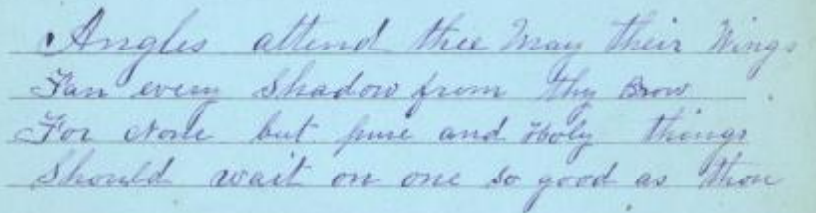 Angles attend thee May their Wings
Fan every Shadow from thy Brow
For None but pure and Holy things
Should wait on one so good as thou